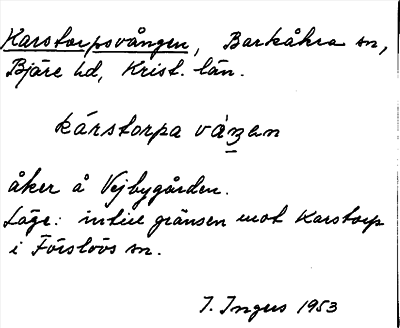 Karstorpsvången, Barkåkra sn,
Bjäre hd, Krist. län.
kárstorpa våŋen
åker å Vejbygården.
Läge: intill gränsen mot Karstorp
i Förslövs sn.
I. Ingers 1953